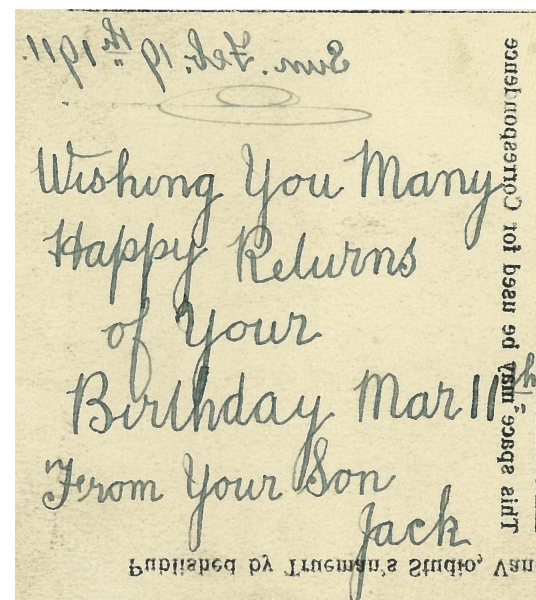 Sun. Feb. 19th 1911.
Wishing You Many
Happy Returns
of Your
Birthday Mar 11th
From Your Son
Jack
This space may be used for Correspondence
Published by Trueman's Studio, Van